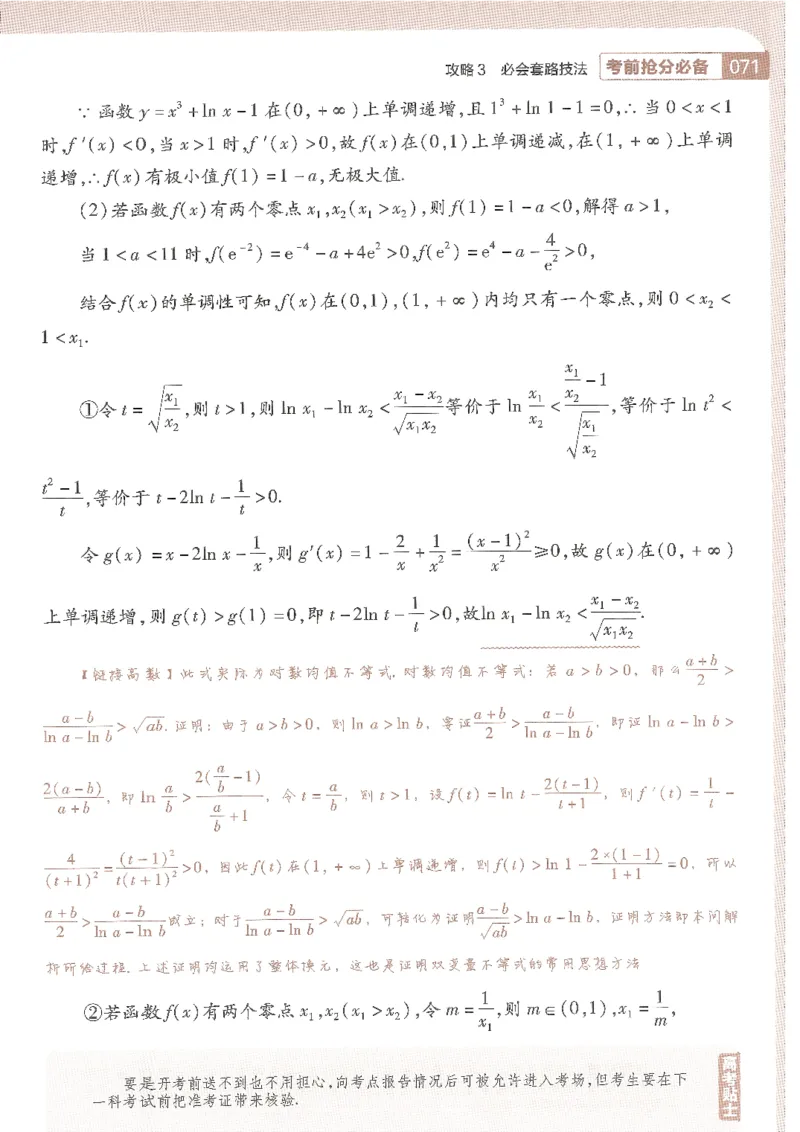 攻略3 必会套路技法 考前抢分必备 071
∵ 函数 y=x³+ln x-1 在(0, +∞)上单调递增,且 1³+ln 1-1=0,∴ 当 0<x<1
时,f′(x)<0,当 x>1 时,f′(x)>0,故 f(x)在(0,1)上单调递减,在(1, +∞)上单调
递增,∴ f(x)有极小值 f(1)=1-a,无极大值.
(2)若函数 f(x)有两个零点 x₁,x₂(x₁>x₂),则 f(1)=1-a<0,解得 a>1,
当 1<a<11 时,f(e⁻²)=e⁻⁴-a+4e²>0,f(e²)=e⁴-a-4/e²>0,
结合 f(x)的单调性可知,f(x)在(0,1),(1, +∞)内均只有一个零点,则 0<x₂<
1<x₁.
①令 t=√(x₁/x₂),则 t>1,则 ln x₁-ln x₂<(x₁-x₂)/√(x₁x₂)等价于 ln x₁/x₂<(x₁/x₂-1)/√(x₁/x₂),等价于 ln t²<
(t²-1)/t,等价于 t-2ln t-1/t>0.
令 g(x)=x-2ln x-1/x,则 g′(x)=1-2/x+1/x²=(x-1)²/x²≥0,故 g(x)在(0, +∞)
上单调递增,则 g(t)>g(1)=0,即 t-2ln t-1/t>0,故ln x₁-ln x₂<(x₁-x₂)/√(x₁x₂).
【链接高数】此式实际为对数均值不等式. 对数均值不等式: 若 a>b>0, 那么(a+b)/2>
(a-b)/(ln a-ln b)>√(ab). 证明: 由于 a>b>0, 则 ln a>ln b, 要证(a+b)/2>(a-b)/(ln a-ln b), 即证 ln a-ln b>
2(a-b)/(a+b), 即 ln a/b>2(a/b-1)/(a/b+1), 令 t=a/b, 则 t>1, 设 f(t)=ln t-2(t-1)/(t+1), 则 f′(t)=1/t-
4/(t+1)²=(t-1)²/t(t+1)²>0, 因此 f(t)在(1, +∞)上单调递增, 则 f(t)>ln 1-2×(1-1)/(1+1)=0, 所以
(a+b)/2>(a-b)/(ln a-ln b)成立; 对于(a-b)/(ln a-ln b)>√(ab), 可转化为证明(a-b)/√(ab)>ln a-ln b, 证明方法即本问解
析所给过程. 上述证明均运用了整体换元, 这也是证明双变量不等式的常用思想方法
②若函数 f(x)有两个零点 x₁,x₂(x₁>x₂),令 m=1/x₁,则 m∈(0,1),x₁=1/m,
要是开考前送不到也不用担心,向考点报告情况后可被允许进入考场,但考生要在下
一科考试前把准考证带来核验.
高考贴士